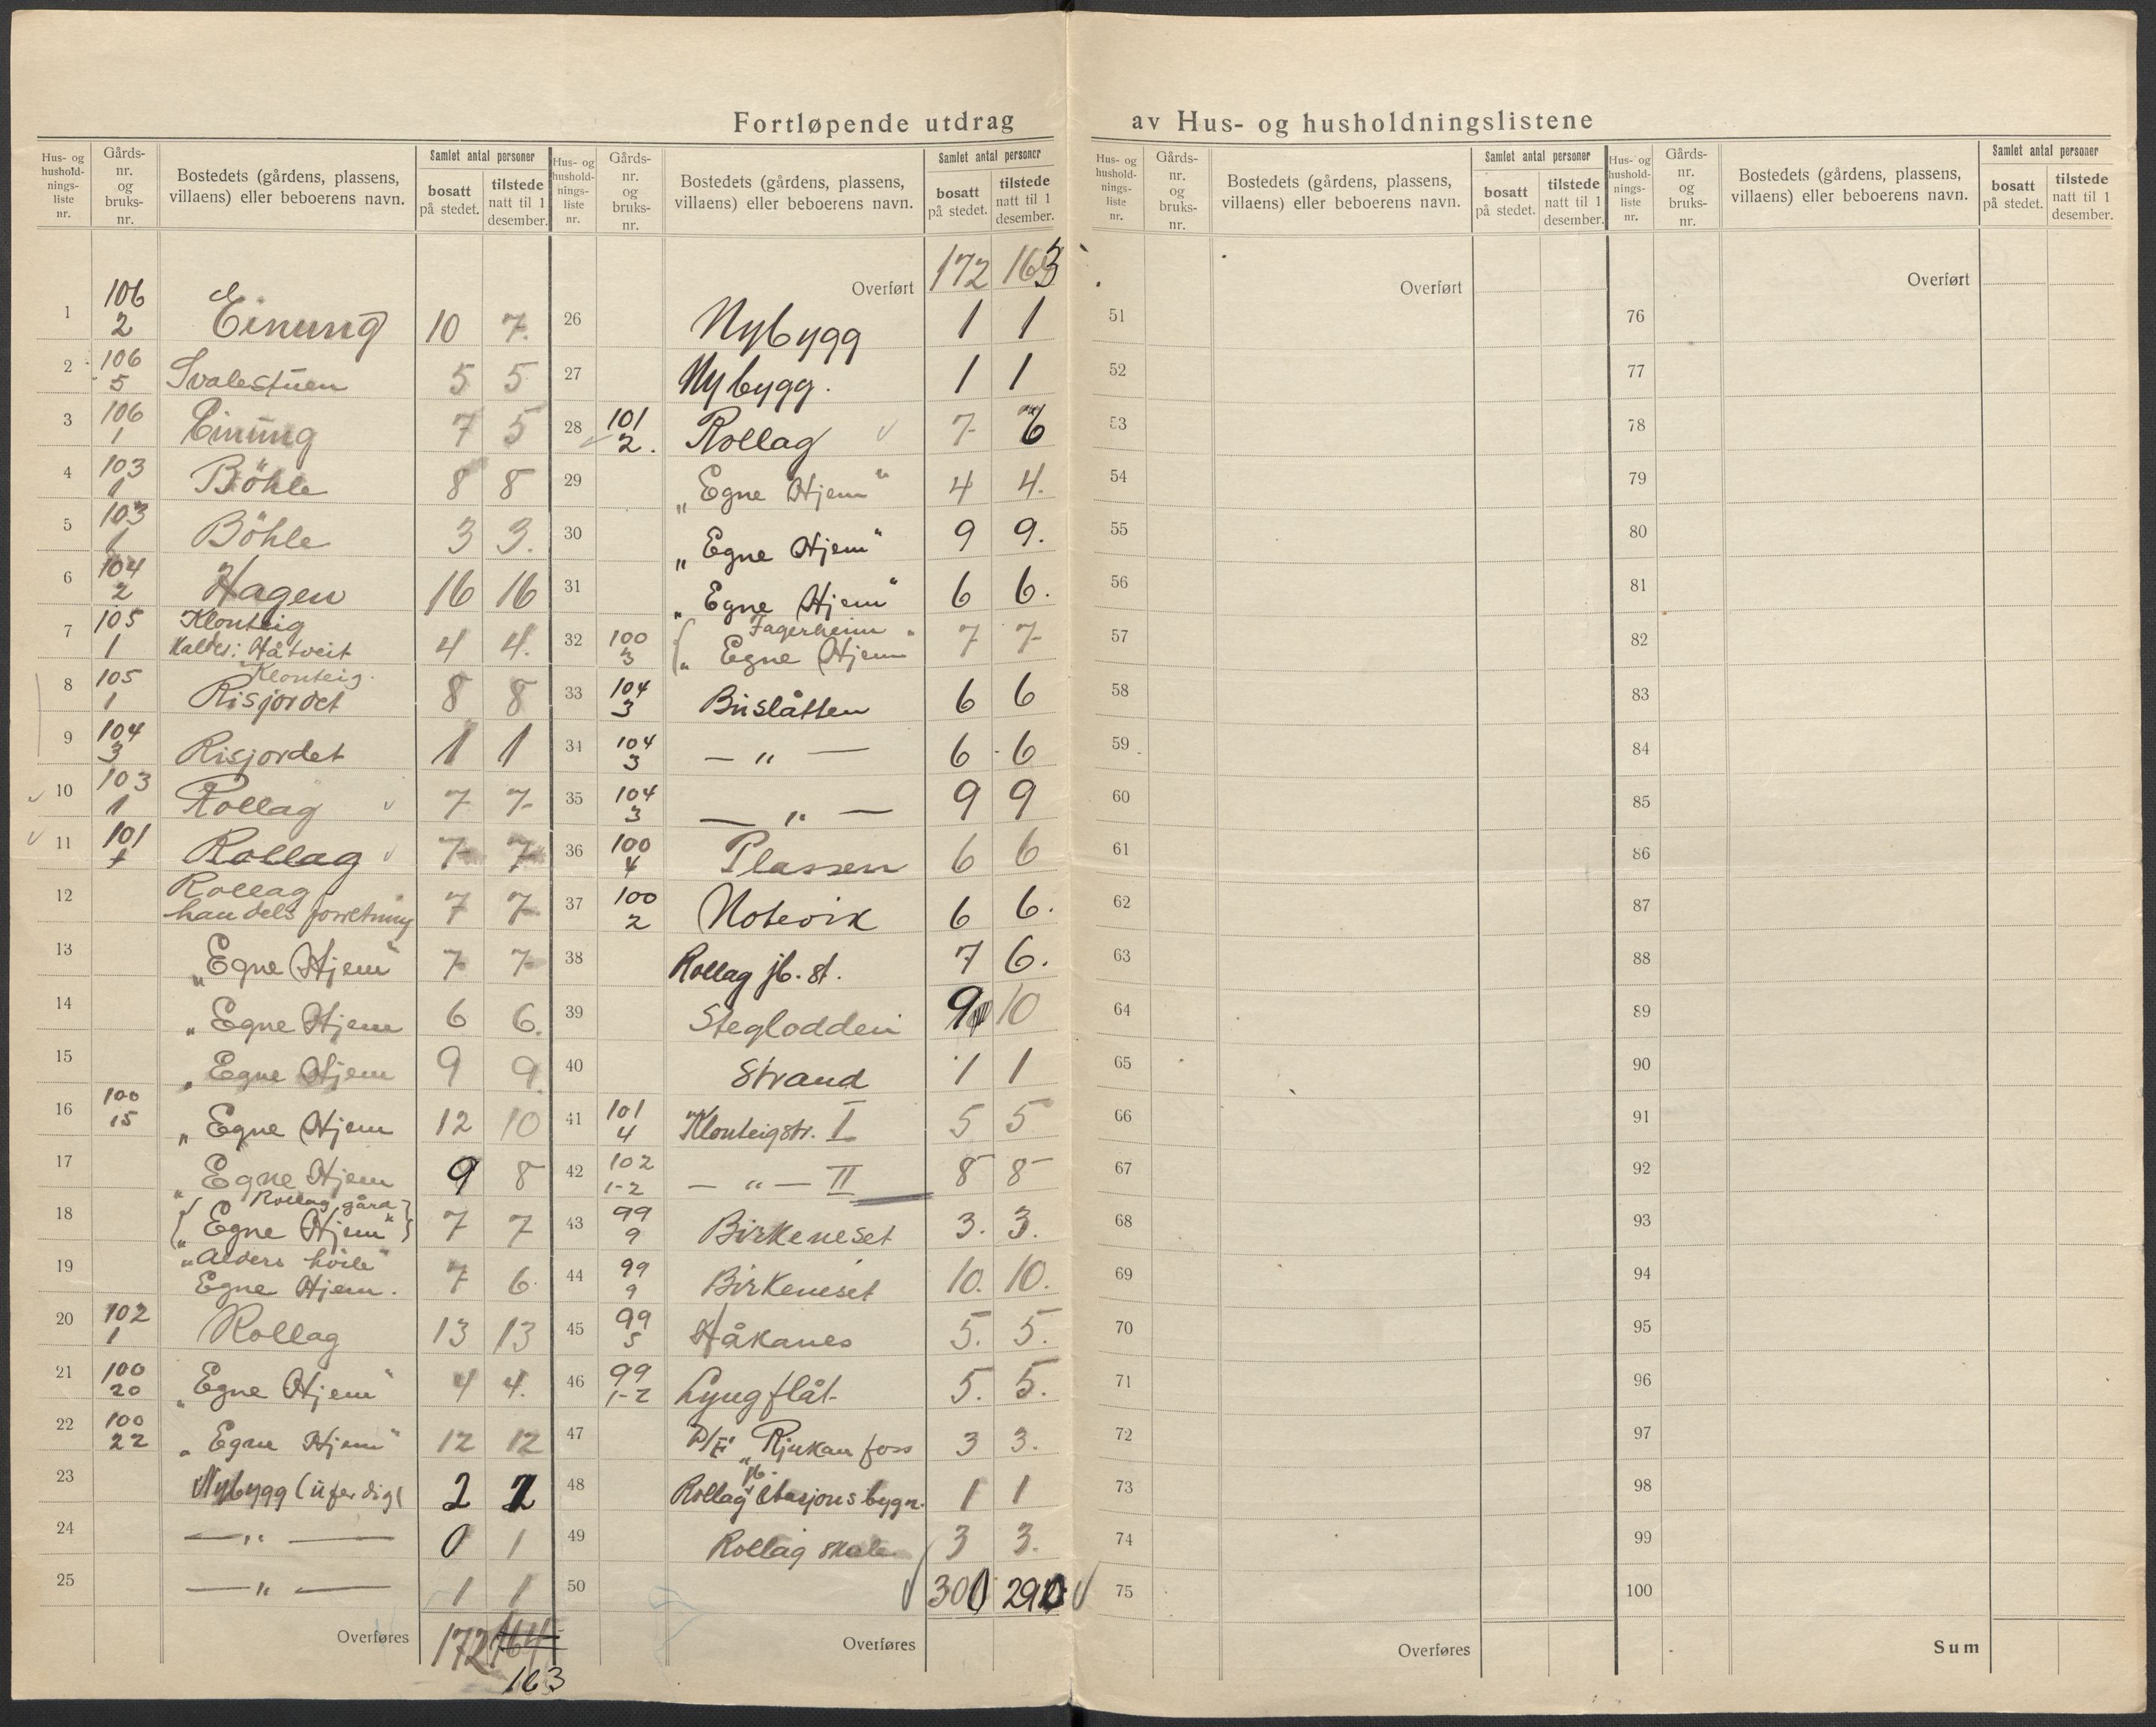 Fortløpende utdrag av Hus- og husholdningslistene
Hus- og hushold-nings-liste nr. Gårds-nr. og bruks-nr. Bostedets (gårdens, plassens, villaens) eller beboerens navn. Samlet antal personer bosatt på stedet. tilstede natt til 1 desember.
1 106 2 Einung 10 7.
2 106 5 Svalestuen 5 5
3 106 1 Einung 7 5
4 103 1 Böhle 8 8
5 103 1 Böhle 3 3.
6 104 2 Hagen 16 16
7 105 1 Klonteig
Kaldes: Håtveit 4 4.
8 105 1 Klonteig.
Risjordet 8 8
9 104 3 Risjordet 1 1
10 103 1 Rollag 7 7
11 101 1 Rollag 7 7
12 Rollag
handelsforretning 7 7
13 „Egne Hjem" 7 7
14 „Egne Hjem 6 6.
15 „Egne Hjem 9 9.
16 100 15 „Egne Hjem 12 10
17 „Egne Hjem 9 8
18 Rollag gård
„Egne Hjem" 7 7
19 „Alders hvile"
Egne Hjem. 7 6.
20 102 1 Rollag 13 13
21 100 20 „Egne Hjem" 4 4.
22 100 22 „Egne Hjem" 12 12
23 Nybygg (uferdig( 2 2
24 — „ — 0 1
25 — „ — 1 1
Overføres 172 164
163
Hus- og hushold-nings-liste nr. Gårds-nr. og bruks-nr. Bostedets (gårdens, plassens, villaens) eller beboerens navn. Samlet antal personer bosatt på stedet. tilstede natt til 1 desember.
Overført 172 163
26 Nybygg 1 1
27 Nybygg. 1 1
28 101 2. Rollag 7 6
29 „Egne Hjem" 4 4.
30 „Egne Hjem" 9 9.
31 „Egne Hjem" 6 6.
32 100 3 Fagerheim
„Egne Hjem" 7 7
33 104 3 Buslåtten 6 6
34 104 3 — „ — 6 6
35 104 3 — „ — 9 9
36 100 4 Plassen 6 6
37 100 2 Notevik 6 6.
38 Rollag jb. st. 7 6.
39 Steglodden 9 10
40 Strand 1 1
41 101 4 Klonteigstr. I 5 5
42 102 1-2 — „ — II 8 8
43 99 9 Birkeneset 3. 3.
44 99 9 Birkeneset 10. 10.
45 99 5 Håkanes 5. 5.
46 99 1-2 Lyngflåt 5. 5.
47 D/F „Rjukanfoss 3 3.
48 Rollag jb. stasjonsbygn. 1 1
49 Rollag skole 3 3.
50 300 290
Overføres
Hus- og hushold-nings-liste nr. Gårds-nr. og bruks-nr. Bostedets (gårdens, plassens, villaens) eller beboerens navn. Samlet antal personer bosatt på stedet. tilstede natt til 1 desember.
Overført
51
52
53
54
55
56
57
58
59
60
61
62
63
64
65
66
67
68
69
70
71
72
73
74
75
Overføres
Hus- og hushold-nings-liste nr. Gårds-nr. og bruks-nr. Bostedets (gårdens, plassens, villaens) eller beboerens navn. Samlet antal personer bosatt på stedet. tilstede natt til 1 desember.
Overført
76
77
78
79
80
81
82
83
84
85
86
87
88
89
90
91
92
93
94
95
96
97
98
99
100
Sum